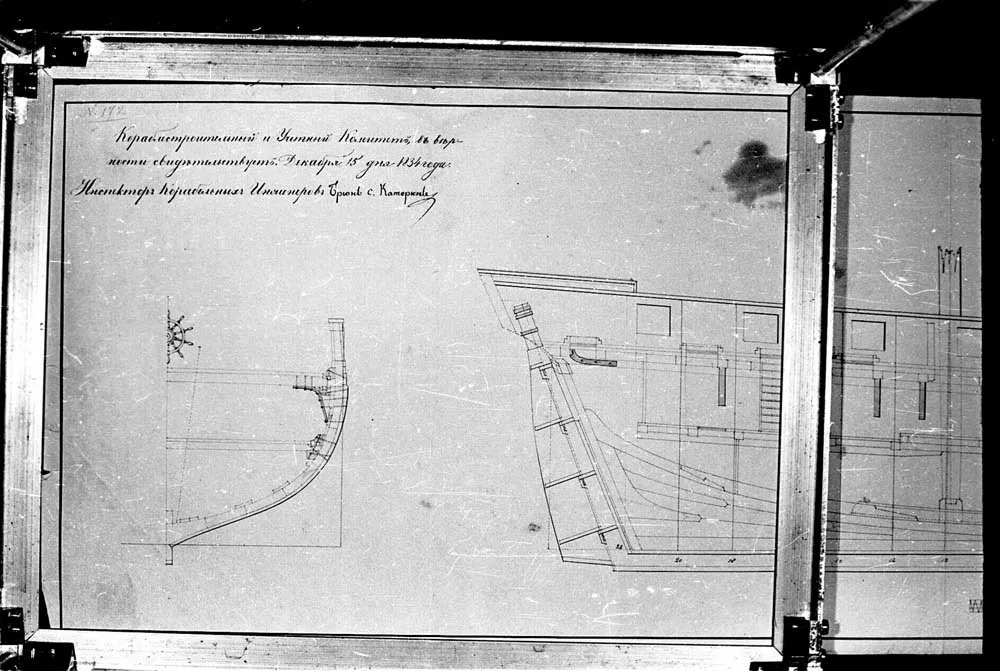 № 192
Кораблестроительный и Учетный Комитетъ, въ вѣр-
ности свидѣтельствуетъ. Декабря 15 дня 1834 года.
Инспекторъ Корабельныхъ Инженеровъ Брюнъ с. Катеринъ
20 18 12 10